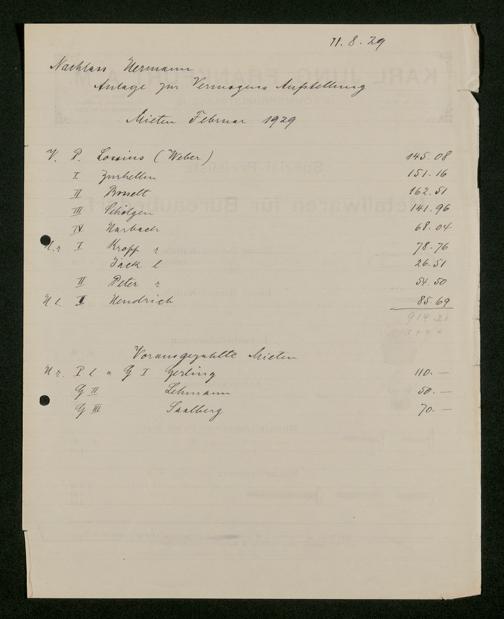 11.8.29
Nachlass Hermann
Anlage zur Vermögens Aufstellung
Mieten Februar 1929
V. P. Lossius (Weber) 145.08
I Zurhellen 151.16
II 162.51
III Schölgen 141.96
IV Harbach 68.04
H.r. I Kropp r 78.76
Jäck l 26.51
II Peter r 54.50
H l. I Hendrich 85.69
914.21
Vorausgezahlte Mieten
H r. P l u G I Gerling 110.—
G II Lehmann 50.—
G III Saalberg 70.—